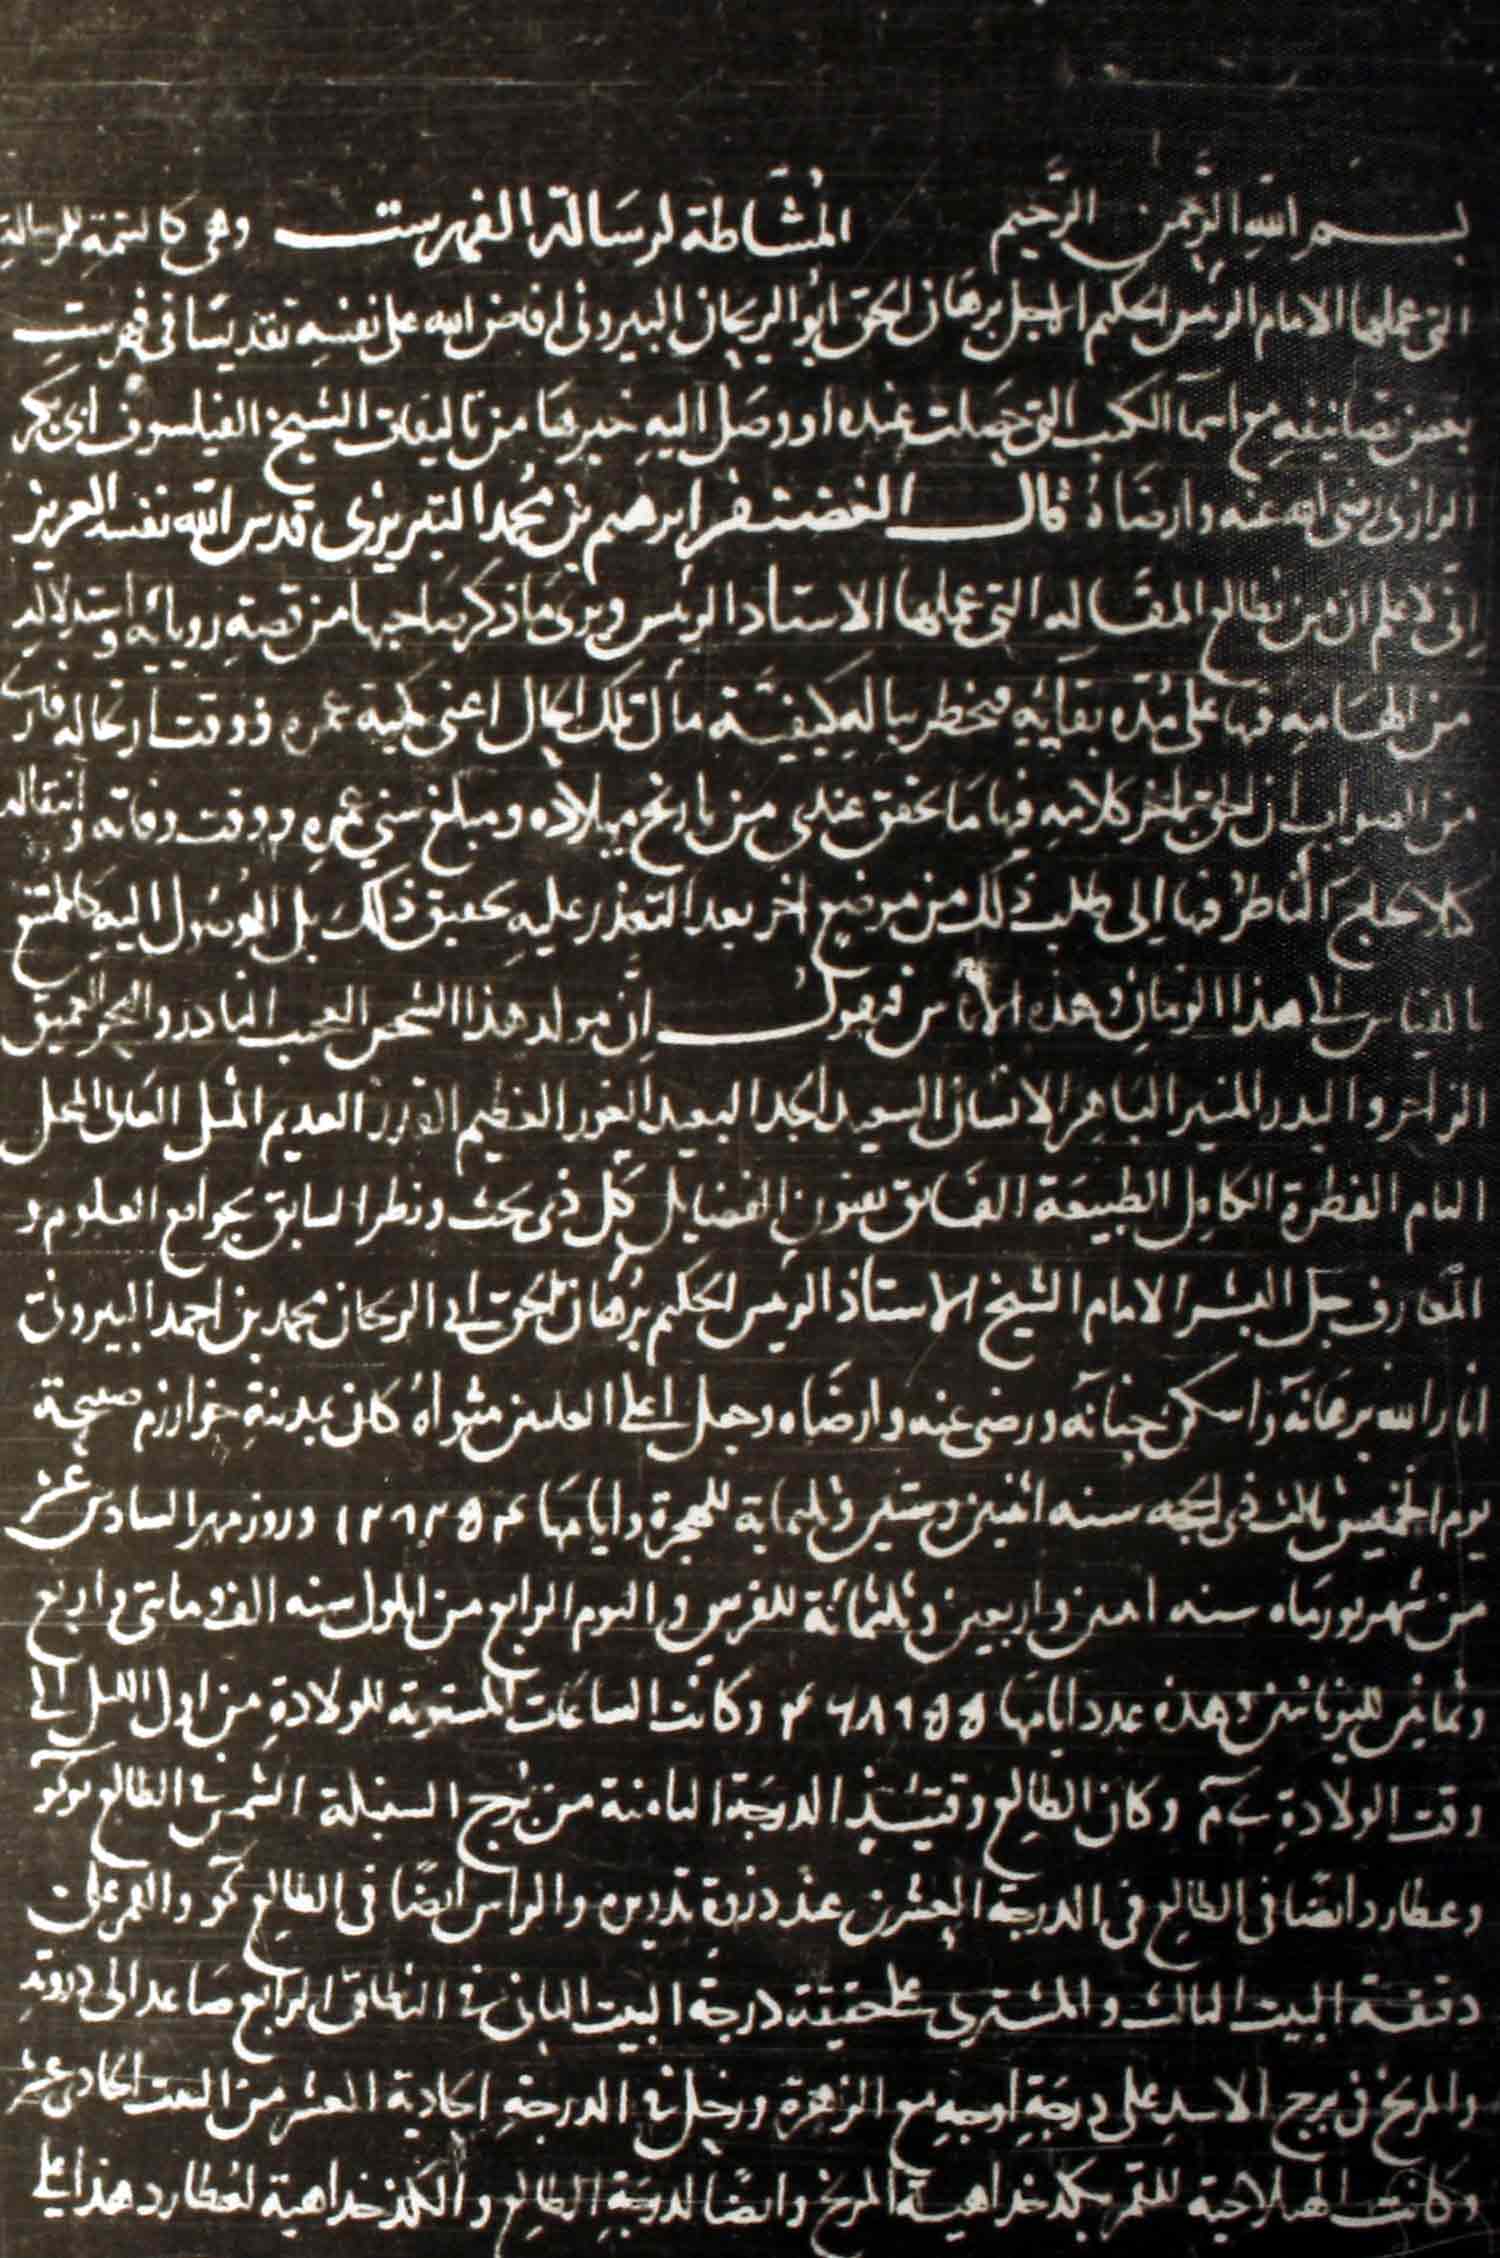 بسم الله الرحمن الرحيم المشاطة لرسالة الفهرست وهي كالتتمة للرسالة
التي عملها الامام الرئيس الحكيم الاجل برهان الحق ابو الريحان البيروني افاض الله على نفسه تقديسا في فهرست
بعض تصانيفه مع اسما الكتب التي حصلت عنده او وصل اليه خبرها من تاليفات الشيخ الفيلسوف ابي بكر
الرازي رضي الله عنه وارضاه قال الغضنفر ابرهيم بن محمد التبريزي قدس الله نفسه العزيز
اني لاعلم ان من يطالع المقاله التي عملها الاستاد الرئيس ويرى ما ذكر صاحبها من قصة روياه واستدلاله
من الهامه فيها على مدة بقايه فيخطر بباله كيفية مآل تلك الحال اعني كمية عمره ووقت ارتحاله فارى
من الصواب ان الحق باخر كلامه فيها ما تحقق عندي من تاريخ ميلاده ومبلغ سني عمره ووقت وفاته وانتقاله
كلا يحتاج الناظر فيها الى طلب ذلك من موضع اخر بعد التعذر عليه تحقيق ذلك بل الوصول اليه كالممتنع
بالقياس الى هذا الزمان وهذه الاناس فيقول ان مولد هذا الشخص العجيب النادر والبحر العميق
الزاخر والبدر المنير الباهر الانسان السعيد الجد البعيد الغور العظيم القدر العديم المثل العالي المحل
التام الفطرة الكامل الطبيعة الفائق بفنون الفضايل كل ذي بحث ونظر السابق بجوامع العلوم و
المعارف جل البشر الامام الشيخ الاستاذ الرئيس الحكيم برهان الحق ابي الريحان محمد بن احمد البيروني
انار الله برهانه واسكن جنانه ورضي عنه وارضاه وجعل اعلى العلين مثواه كان بمدينة خوارزم صبيحة
يوم الخميس ثالث ذي الحجه سنه اثنين وستين وثلثماية للهجرة وايامها ١٢٨٢٥٤ وروز مهر السادس عشر
من شهريور ماه سنه اثنين واربعين وثلثمائة للفرس واليوم الرابع من ايلول سنه الف ومائتي واربع
وثمانين لليونانين وهذه عدد ايامها ٤٦٨٩٥٥ وكانت الساعات المستوية للولادة من اول الليل الى
وقت الولادة ي م وكان الطالع وقتئذ الدرجة الثامنة من برج السنبلة الشمس في الطالع
وعطارد ايضا في الطالع في الدرجة العشرين عند ذروة تدويره والراس ايضا في الطالع كو والقمر على
دقيقة البيت الثالث والمشتري على حقيقة درجة البيت الثاني في النطاق الرابع صاعد الى ذروته
والمريخ في برج الاسد على درجة اوجه مع الزهرة وزحل في الدرجة الحادية العشر من البيت الحادي عشر
وكانت الهيلاجية للقمر بكدخداهية المريخ وايضا لدرجة الطالع والكدخداهية لعطارد هذا على